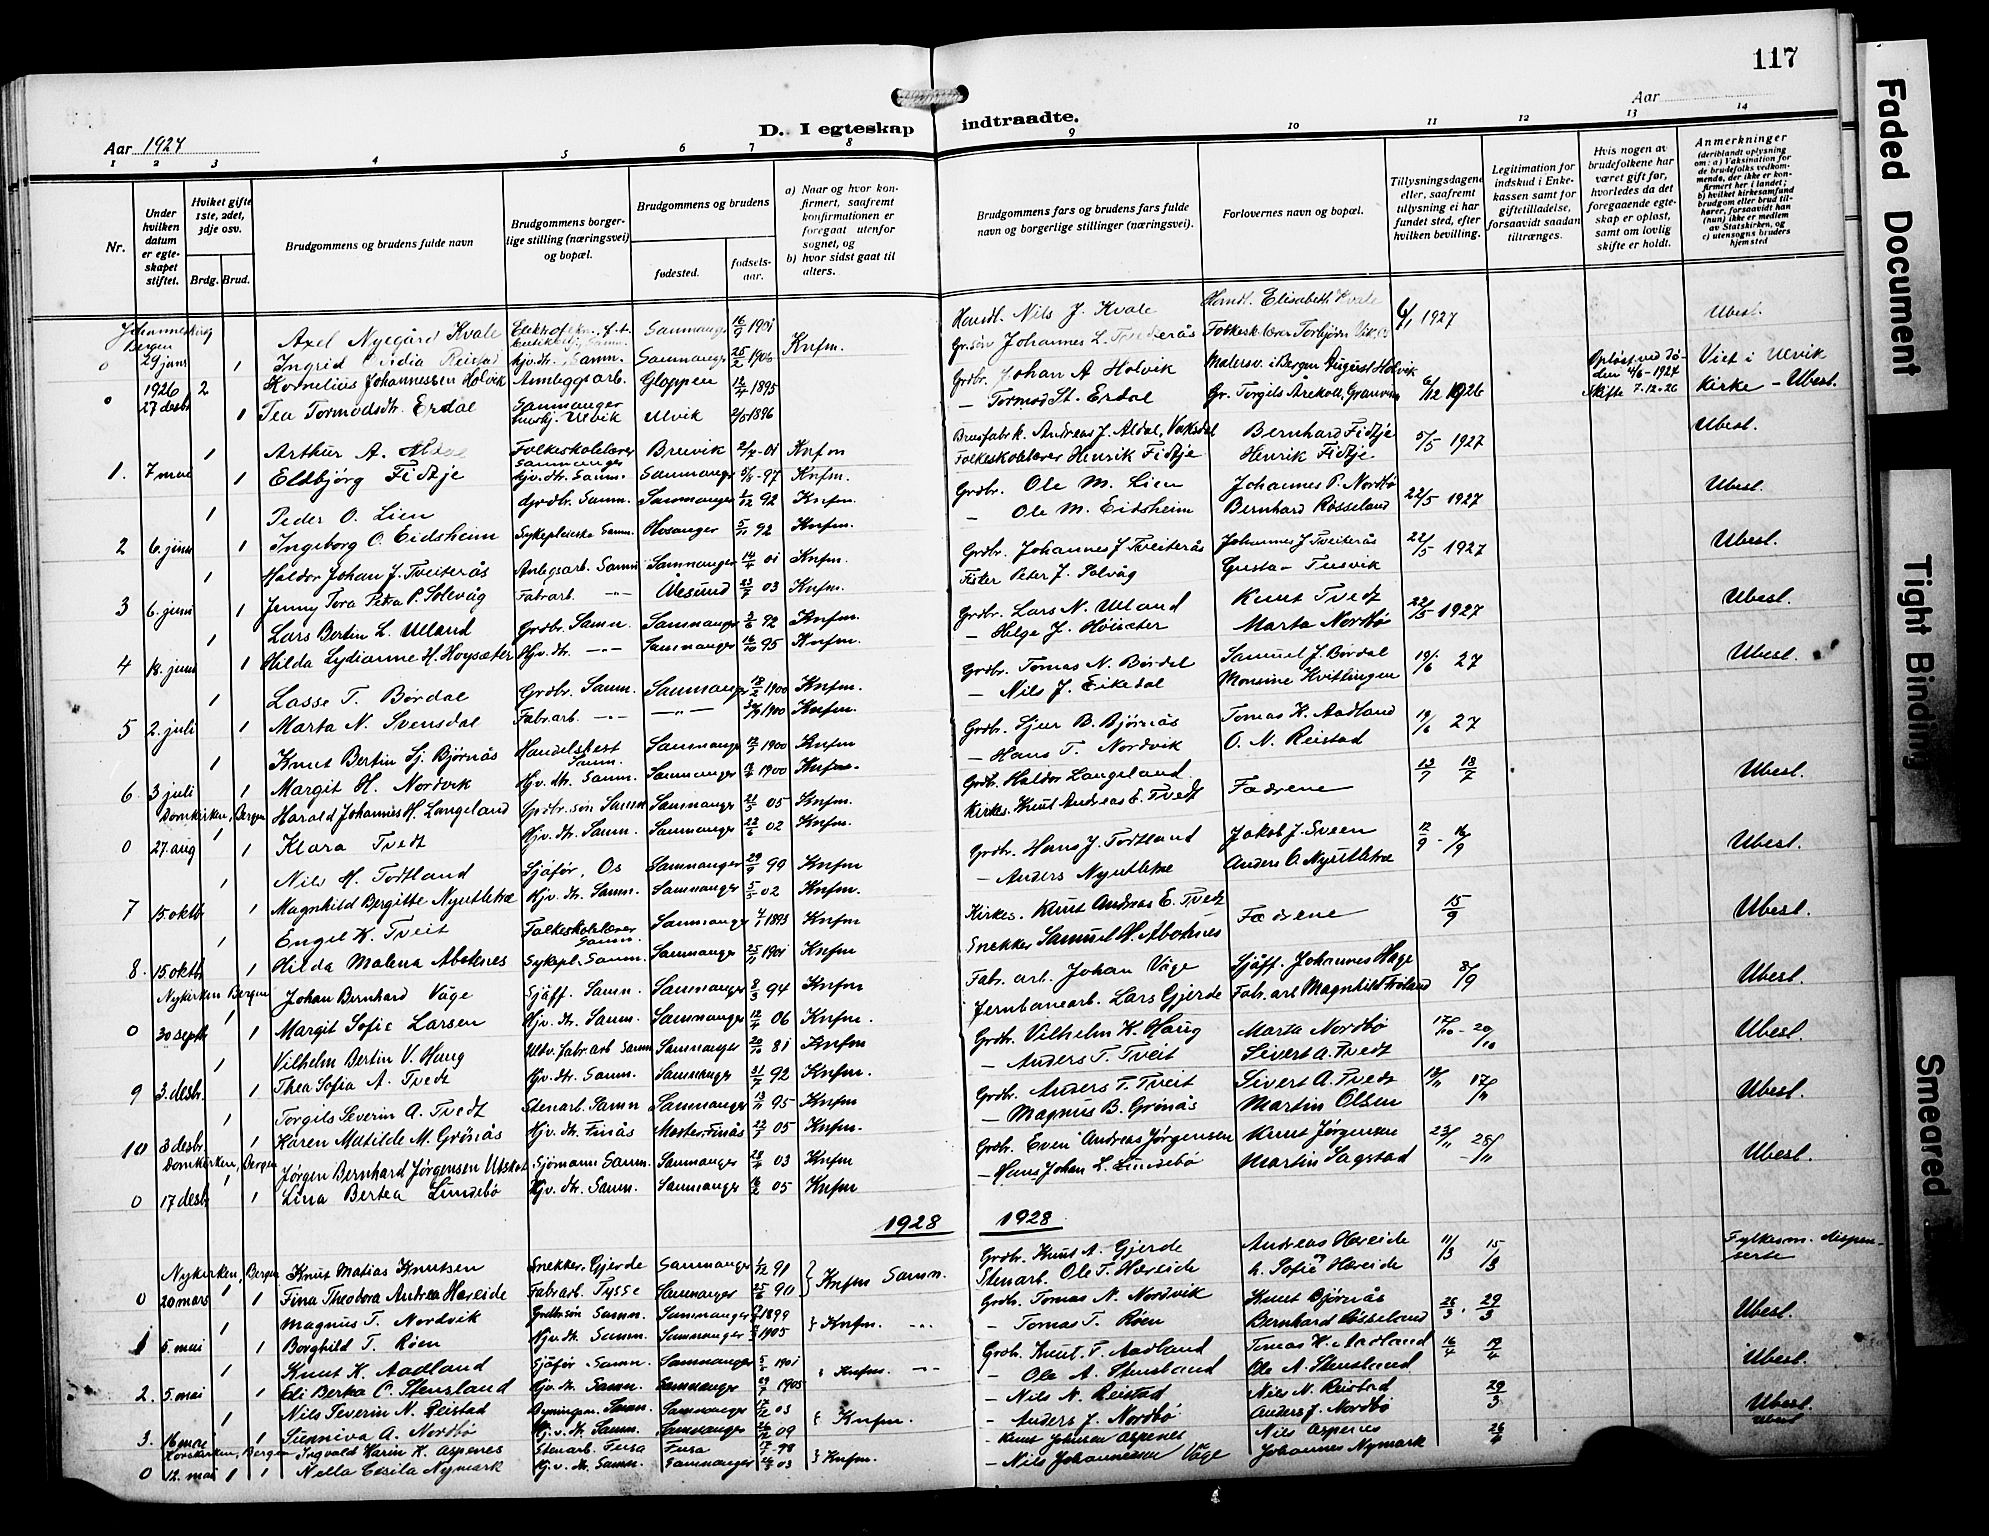 117
Aar 1927
D. I egteskap indtraadte.
Aar
1 2 3 4 5 6 7 8 9 10 11 12 13 14
Nr.
Under hvilken datum er egteskapet stiftet.
Hvilket gifte 1ste, 2det, 3dje osv.
Brdg. Brud.
Brudgommens og brudens fulde navn
Brudgommens borgerlige stilling (næringsvei) og bopæl.
Brudgommens og brudens
fødested.
fødselsaar.
a) Naar og hvor konfirmert, saafremt konfirmationen er foregaat utenfor sognet, og
b) hvor sidst gaat til alters.
Brudgommens fars og brudens fars fulde navn og borgerlige stillinger (næringsvei).
Forlovernes navn og bopæl.
Tillysningsdagene eller, saafremt tillysning ei har fundet sted, efter hvilken bevilling.
Legitimation for indskud i Enkekassen samt for giftetilladelse, forsaavidt saadan tiltrænges.
Hvis nogen av brudefolkene har været gift før, hvorledes da det foregaaende egteskap er opløst, samt om lovlig skifte er holdt.
Anmerkninger
(deriblandt oplysning om: a) Vaksination for de brudefolks vedkommende, der ikke er konfirmert her i landet; b) hvilket kirkesamfund brudgom eller brud tilhører, forsaavidt han (hun) ikke er medlem av Statskirken, og c) utensogns bruders hjemsted
Johanneskirk. Bergen
Axel Nyegård Kvale Samnanger 16/9 1901 Handl. Nils J. Kvale Handl. Elisabeth Kvale 6/1 1927 Ubesl.
0 29 janr 1 Ingrid Lydia Reistad Hjv. dtr. Samn. Samnanger 25/2 1906 Knfm. Gr. søn Johannes L. Tveiterås
1926 2 Kornelius Johannessen Holvik Anleggsarb. Samnanger Gloppen 12/4 1895 Grdbr. Johan A Holvik Malersv. i Bergen August Holvik 6/12 1926 Skifte 7.12.26 Viet i Ulvik
0 27 desbr 1 Tea Tormodsdtr. Erdal Ulvik Ulvik 2/5 1896 — Tormod St. Erdal Gr. Torgils Årekoll, Granvin kirke - Ubesl.
1 Arthur A. Aldal Folkeskolelærer Samnanger Bruvik 2/4 - 01 Knfm Brusfabrk. Andreas J. Aldal, Vaksdal Bernhard Fidtje 5/5 1927 Ubesl.
1. 7 mai 1 Eldbjørg Fidtje Hjv. dtr. Samn. Samnanger - 97 Knfm. Folkeskolelærer Henrik Fidtje Henrik Fidtje
1 Peder O. Lien Grdbr. Samn. Samnanger 1/12 92 Knfm. Grdbr. Ole M. Lien Johannes P. Nordbø 22/5 1927 Ubesl.
2 6. juni 1 Ingeborg O. Eidsheim Sykepleierske Samn. Hosanger 5/11 92 Knfm. — Ole M. Eidsheim Bernhard Røsseland
1 Haldor Johan J. Tveiterås Anlegsarb. Samn Samnanger 14/4 01 Knfm. Grdbr. Johannes J Tveiterås Johannes J Tveiterås 22/5 1927 Ubesl.
3 6. juni 1 Jenny Tora Petra P. Solevåg Fabrarb. —"— Ålesund 23/7 03 Knfm. Fisker Peter J. Solvåg
1 Lars Bertin L. Ulland Grdbr. Samn. Samnanger 3/6 92 Knfm. Grdbr. Lars N. Ulland Knut Tvedt 22/5 1927 Ubesl.
4 18. juni 1 Hilda Lydianne H. Høysæter Hjv. dtr. —"— Samnanger 16/10 95 Knfm. — Helge J. Høisæter Marta Nordbø
1 Lasse T. Børdal Grdbr. Samn. Samnanger 18/2 1900 Knfm. Grdbr. Tomas N. Børdal Samuel J. Børdal 19/6 27 Ubesl.
5 2. juli 1 Marta N. Svensdal Fabrarb. —"— —"— 1900 Knfm. — Nils J. Eikedal Monsine Kvitlingen
1 Knut Bertin Sj. Bjørnås Handelsbest Samn. Samnanger 12/7 1900 Knfm Grdbr. Sjur B. Bjørnås Tomas K. Aadland 19/6 27
6. 3 juli 1 Margit H. Nordvik Hjv. dtr. Samn. Samnanger 1900 Knfm. — Hans T. Nordvik O. N. Reistad
Domkirken, Bergen 1 Harald Johannes H. Langeland Grdbr. søn Samn Samnanger 21/5 05 Knfm. Grdbr. Haldor Langeland. Fædrene 13/7 18/7 Ubesl.
0 27. aug 1 Klara Tvedt Hjv. dtr. Samn. Samnanger 22/6 02 Knfm. Kirkes. Knut Andreas E. Tvedt
1 Nils H. Todtland Sjåfør, Os Samnanger 29/9 99 Knfm Grdbr. Hans J. Todtland Jakob J. Sveen 12/9 - 16/9 Ubesl.
7 15 oktbr 1 Magnhild Bergitte Nyutletræ Hjv. dtr. Samn. Samnanger 5/5 02 Knfm. — Anders Nyutletræ Anders O. Nyutletræ
1 Engel K. Tveit Folkeskolelærer Samn. Samnanger 4/1 1893 Knfm Kirkes. Knut Andreas E. Tvedt Fædrene 15/9 Ubesl.
8. 15 oktbr 1 Hilda Malena Abotnes Sykepl. Samn. Samnanger 25/11 1901 Knfm Snekker Samuel H. Abotnes
Nykirken Bergen 1 Johan Bernhard Våge Sjåff. Samn. Samnanger 8/3 94 Knfm Fab. arb. Johan Våge Sjåff. Johannes Hage 8/9 Ubesl.
0 30 septb 1 Margit Sofie Larsen Hjv. dtr. Samn. Samnanger 12/4 06 Knfm. Jernbanearb. Lars Gjerde Fab. arb Magnhild Frøland
1 Vilhelm Bertin V. Haug Utv. Fabr. arb Samn Samnanger 20/10 81 Knfm. Grdbr. Vilhelm K. Haug Marta Nordbø 17/10 - 20/10 Ubesl.
9 3. desbr. 1 Thea Sofia A. Tvedt Hjv. dtr. Samn. Samnanger 31/7 92 Knfm. — Anders T. Tveit Sivert A. Tvedt
1 Torgils Severin A. Tvedt Stenarb. Samn Samnanger 13/11 95 Knfm Grdbr. Anders T. Tveit Sivert A. Tvedt 13/11 17/11 Ubesl.
10 3 desbr 1 Karen Matilde M. Grönås Hjv. dtr. Finås Moster, Finås 22/7 05 Knfm. — Magnus B. Grönås Martin Olsen
Domkirken, Bergen 1 Jørgen Bernhard Jørgensen Utskot Sjömann Samn. Samnanger 28/4 03 Knfm Grdbr. Even Andreas Jørgensen Knut Jørgensen 23/11 - 25/11 Ubesl.
0 17 desbr 1 Lina Bertea Lundebø Hjv. dtr. Samn. Samnanger 16/2 05 Knfm — Hans Johan L. Lundebø Martin Sagstad
1928 1928
Nykirken, Bergen 1 Knut Matias Knutsen Snekker. Gjerde Samnanger 1/12 91 } Knfm Samn. Grdbr. Knut A. Gjerde Andreas Hæreide 11/3 15/3 Fylkesm. dispenserte
0 20 mars 1 Fina Theodora Andrea Hæreide Fabrarb. Tysse Samnanger 25/6 90 Stenarb. Ole T. Hæreide h. Sofie Hæreide
1 Magnus T. Nordvik Grdbr. søn Samn. Samnanger 1899 } Knfm. —"— Grdbr. Tomas N. Nordvik Knut Bjørnås 26/3 . 29/3 Ubesl.
1 5. mai 1 Borghild T. Røen Hjv. dtr. Samn. Samnanger 1905 — Tomas T. Røen Bernhard Røsseland
1 Knut K. Aadland Sjåfør Samn. Samnanger 1901 Knfm. —"— Grdbr. Knut T. Aadland Tomas K. Aadland 16/4 19/4 Ubesl.
2. 5. mai 1 Eli Berta O. Stensland Hjv. dtr. Samn. Samnanger 29/7 1905 — Ole A. Stensland Ole A. Stensland
1 Nils Severin N. Reistad Samn. Samnanger 17/12 03 } Knfm. — Nils N. Reistad Nils N. Reistad 29/3 Ubesl.
3. 16 mai 1 Sunniva A. Nordbø Hj. v. dtr. Samn. Samnanger 09 — Anders J. Nordbø Anders J. Nordbø
Korskirken, Bergen Ingvald Karin K. Aspenes Stenarb. Fusa Fusa - 98 } Knfm. — Knut Johnsen Aspenes Nils Aspenes 26/4 Ubesl
0 12. mai 1 1 Nella Cesila Nymark Hj. v. dtr. Samn. Samnanger 03 — Nils Johannessen Våge Johannes Nymark
Faded Document
Tight Binding
Smeared